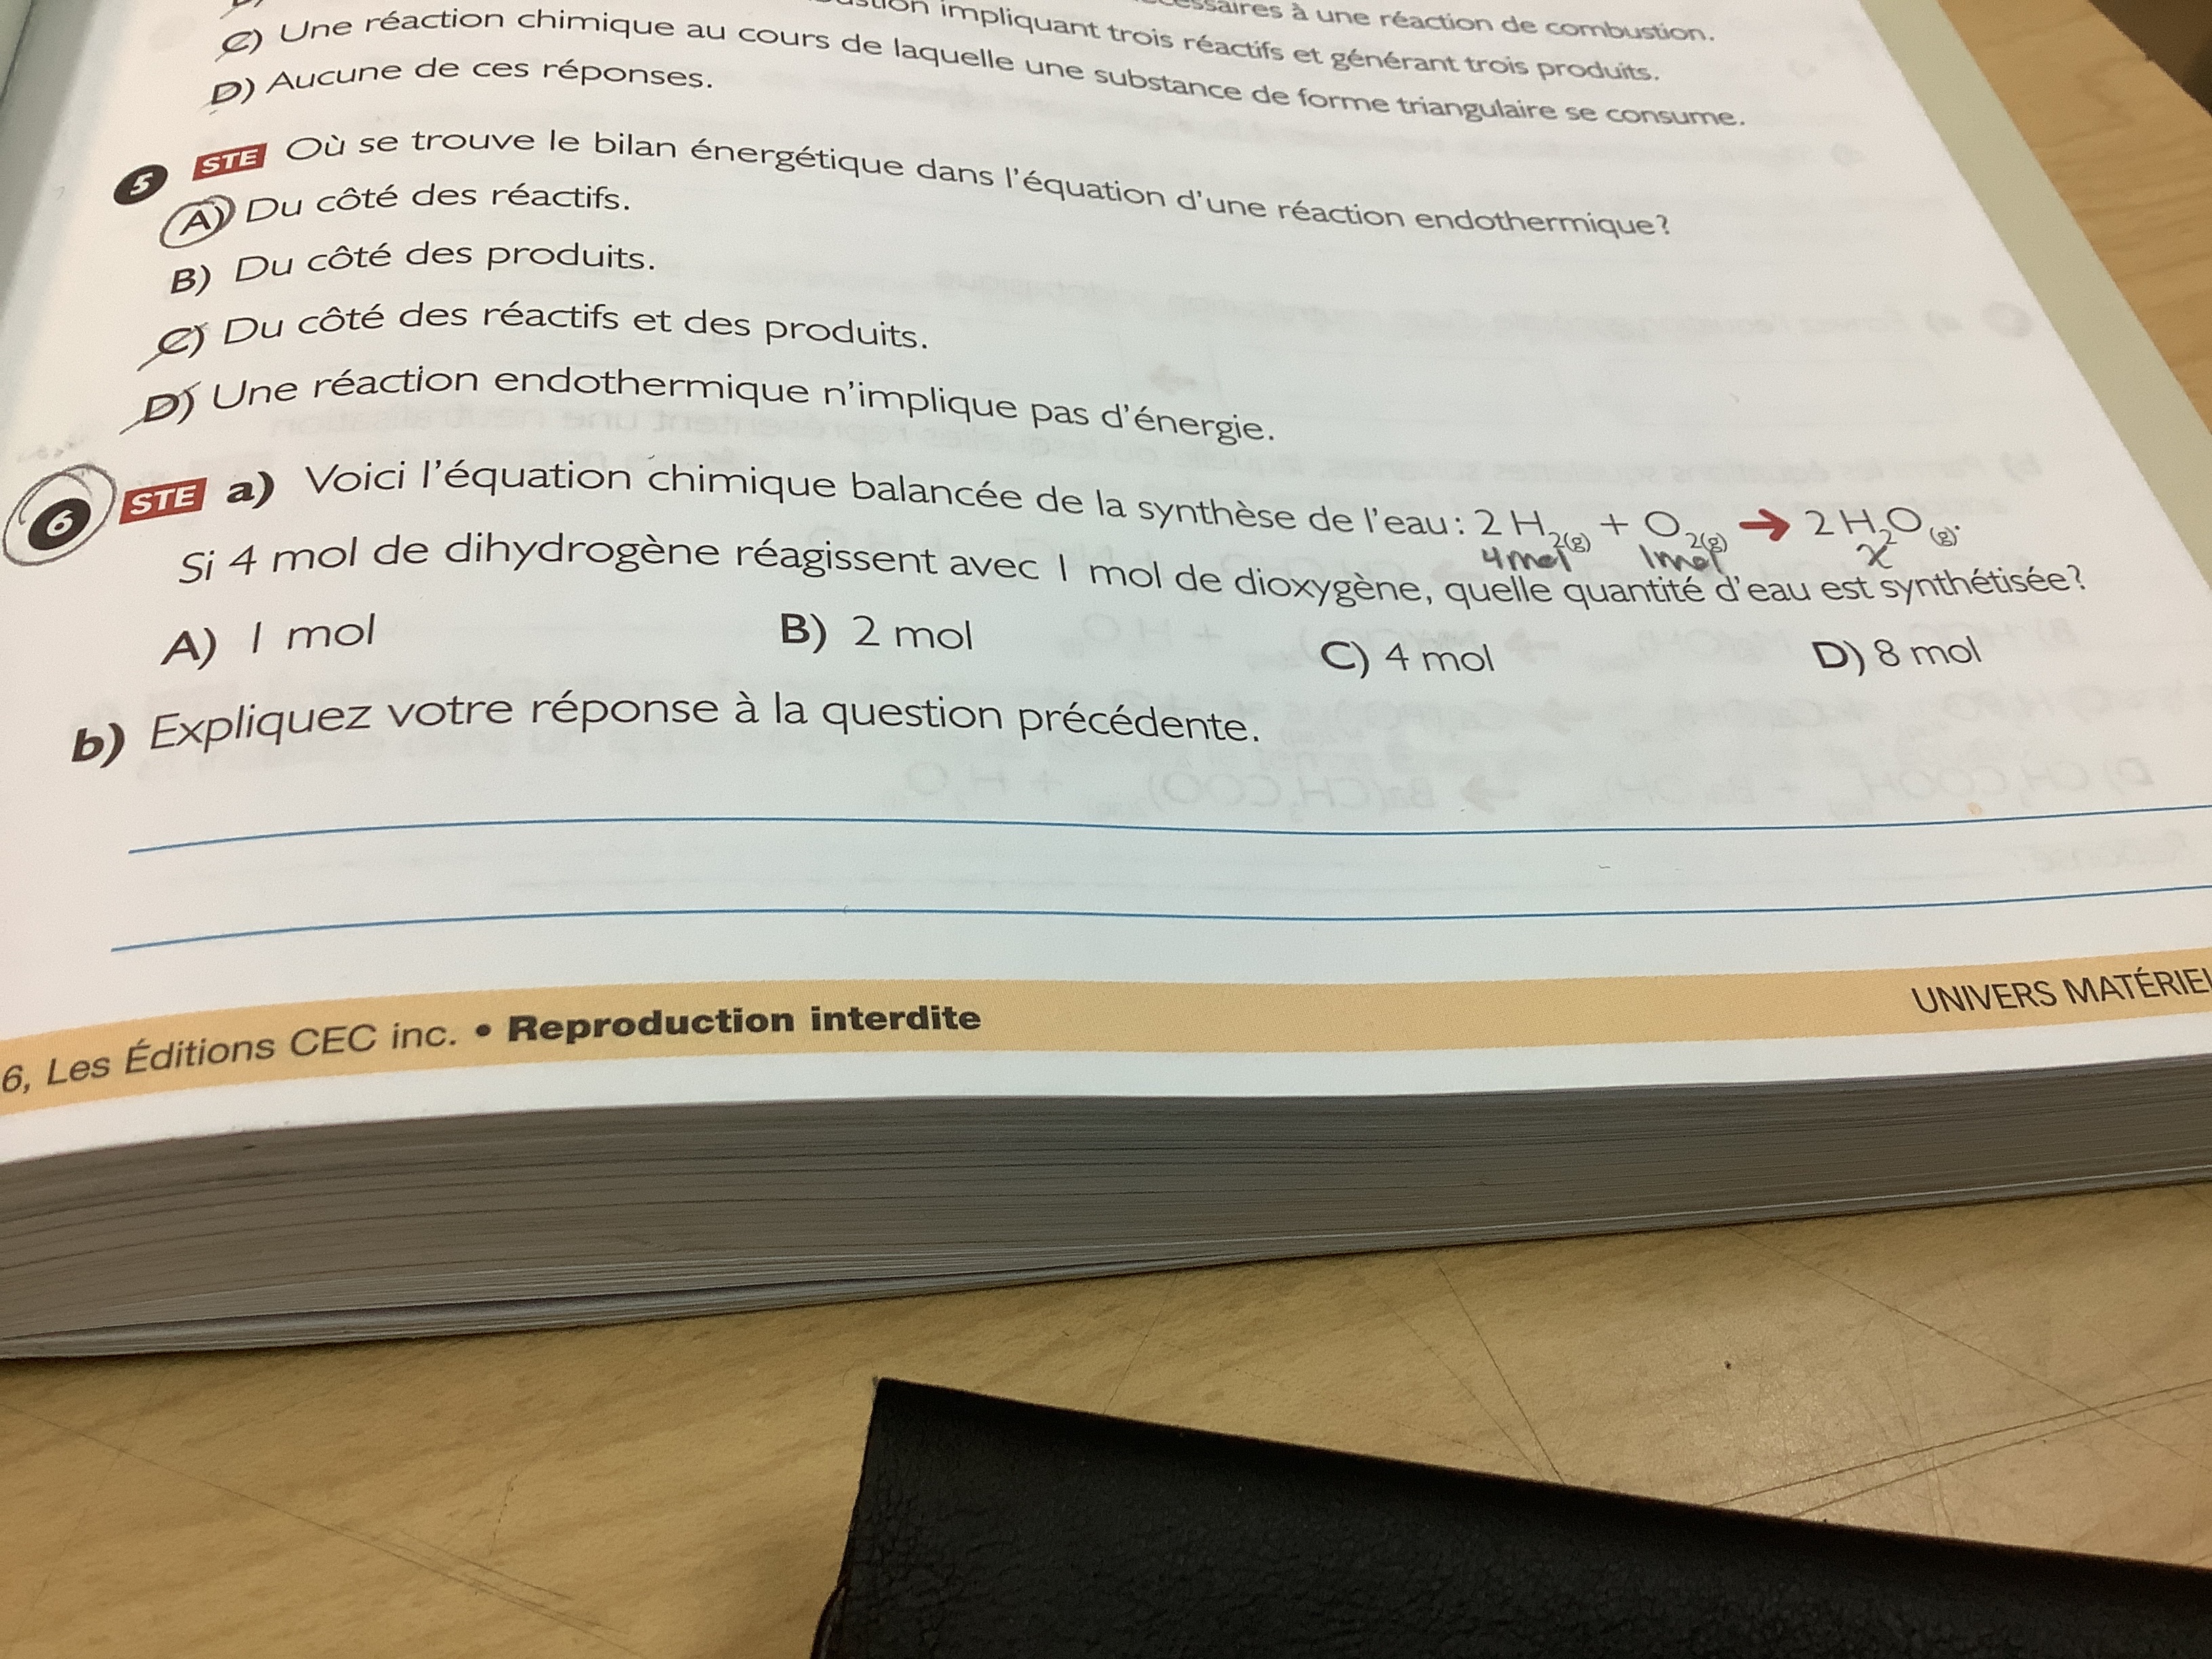 impliquant trois réactifs et générant trois produits.
à une réaction de combustion.
C) Une réaction chimique au cours de laquelle une substance de forme triangulaire se consume.
D) Aucune de ces réponses.
5 STE Où se trouve le bilan énergétique dans l'équation d'une réaction endothermique?
A) Du côté des réactifs.
B) Du côté des produits.
C) Du côté des réactifs et des produits.
D) Une réaction endothermique n'implique pas d'énergie.
6 STE a) Voici l'équation chimique balancée de la synthèse de l'eau : 2 H2(g) + O2(g) → 2 H2O(g).
4mol 1mol x
Si 4 mol de dihydrogène réagissent avec 1 mol de dioxygène, quelle quantité d'eau est synthétisée?
A) 1 mol B) 2 mol C) 4 mol D) 8 mol
b) Expliquez votre réponse à la question précédente.
6, Les Éditions CEC inc. • Reproduction interdite
UNIVERS